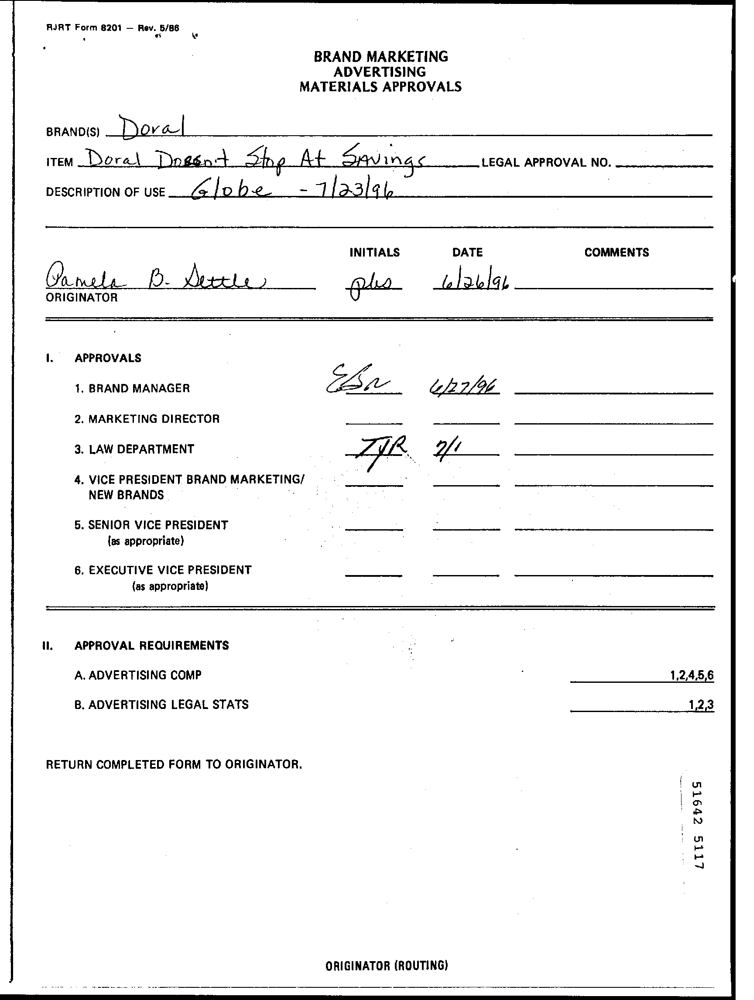 RJRT Form 8201 — Rev. 5/86
BRAND MARKETING
ADVERTISING
MATERIALS APPROVALS
BRAND(S) Doral
ITEM Doral Doesn't Stop At Savings LEGAL APPROVAL NO.
DESCRIPTION OF USE Globe - 7/23/96
INITIALS DATE COMMENTS
Pamela B. Settle pbs 6/26/96
ORIGINATOR
I. APPROVALS
1. BRAND MANAGER 6/27/96
2. MARKETING DIRECTOR
3. LAW DEPARTMENT TYR 7/1
4. VICE PRESIDENT BRAND MARKETING/
NEW BRANDS
5. SENIOR VICE PRESIDENT
(as appropriate)
6. EXECUTIVE VICE PRESIDENT
(as appropriate)
II. APPROVAL REQUIREMENTS
A. ADVERTISING COMP 1,2,4,5,6
B. ADVERTISING LEGAL STATS 1,2,3
RETURN COMPLETED FORM TO ORIGINATOR.
51642 5117
ORIGINATOR (ROUTING)